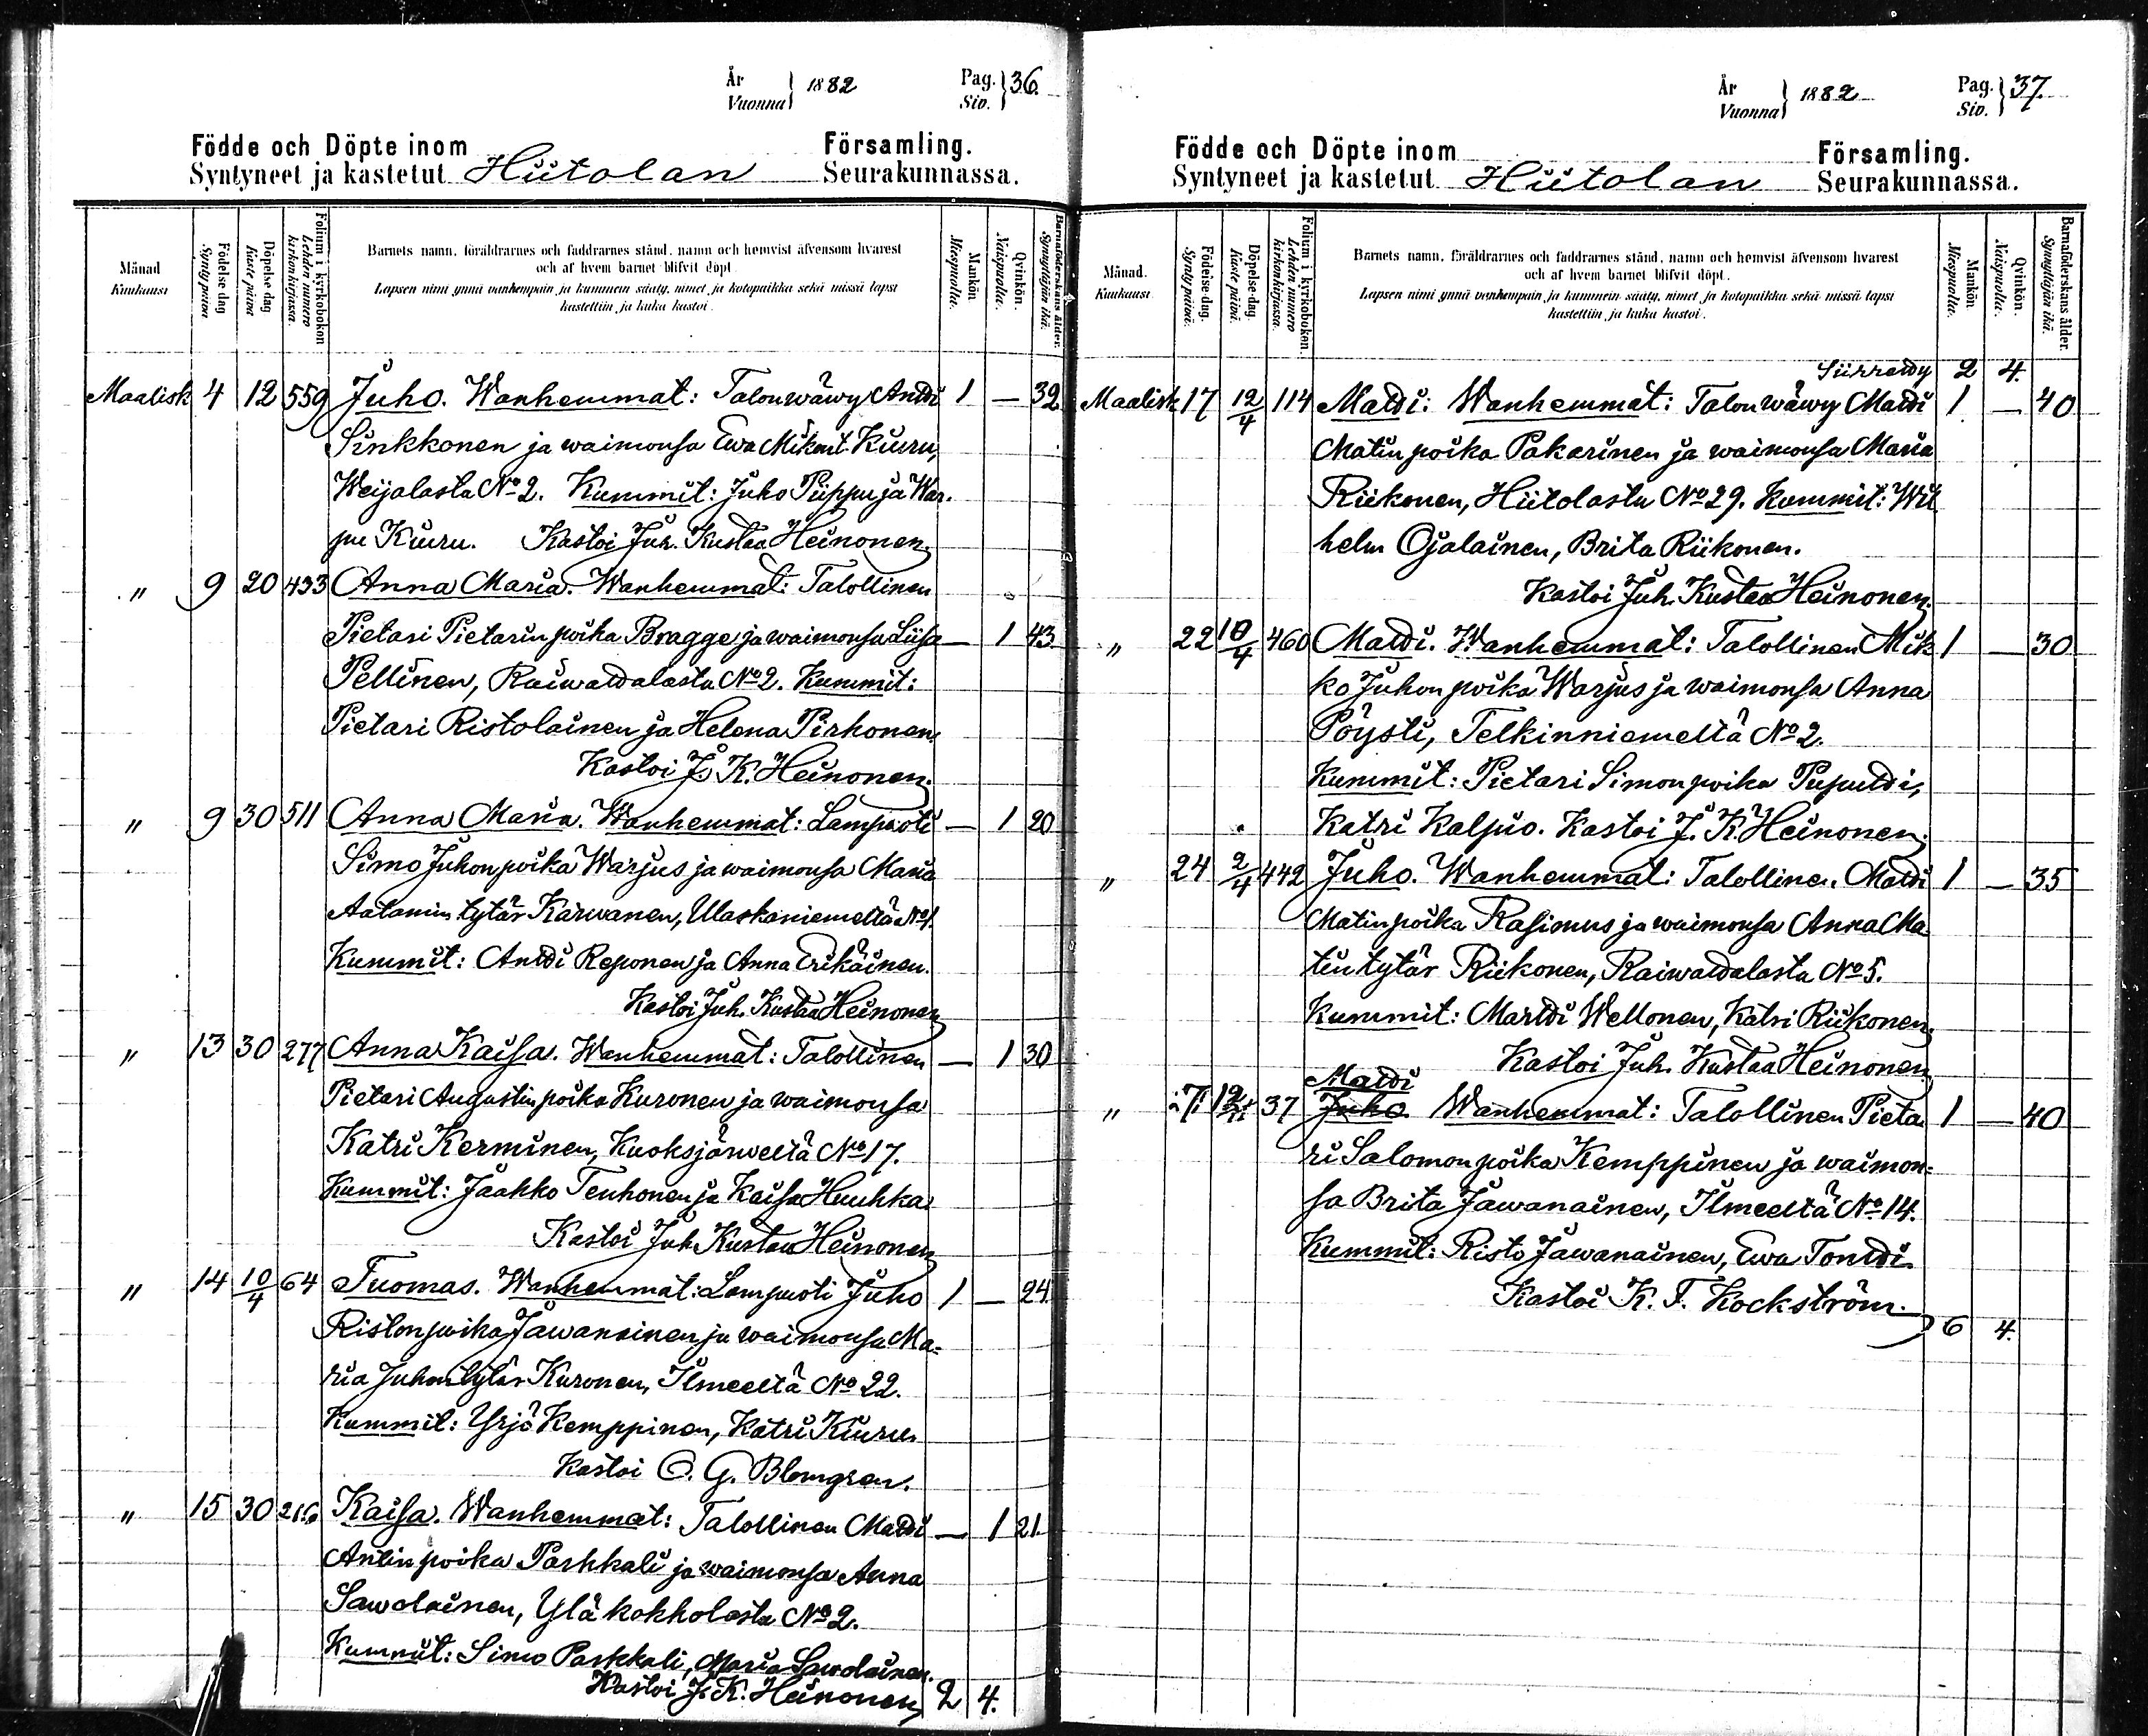 År
Vuonna } 1882
Pag.
Siv. } 36.
Födde och Döpte inom
Syntyneet ja kastetut Hiitolan
Församling.
Seurakunnassa.
Månad
Kuukausi
Födelse-dag
Synty päivä
Döpelse-dag
Kaste päivä
Folium i kyrkoboken
Lehden numero kirkonkirjassa.
Barnets namn, föräldrarnes och faddrarnes stånd, namn och hemvist äfvensom hvarest
och af hvem barnet blifvit döpt.
Lapsen nimi ynnä vanhempain ja kummein sääty, nimet ja kotopaikka sekä missä lapsi
kastettiin ja kuka kastoi.
Mankön.
Miespuolta.
Qvinkön.
Naispuolta.
Barnaföderskans ålder.
Synnyttäjän ikä.
Maalisk 4 12 559 Juho. Wanhemmat: Talonwäwy Antti 1 — 32
Sinkkonen ja waimonsa Ewa Mikont. Kiuru,
Weijalasta No 2. Kummit: Juho Piippu ja War-
pu Kiuru. Kastoi Juh. Kustaa Heinonen.
" 9 20 433 Anna Maria. Wanhemmat: Talollinen
Pietari Pietarin poika Bragge ja waimonsa Liisa — 1 43
Pellinen, Raiwattalasta No 2. Kummit:
Pietari Ristolainen ja Helena Pirhonen.
Kastoi J. K. Heinonen.
" 9 30 511 Anna Maria. Wanhemmat: Lampuoti — 1 20
Simo Juhon poika Warjus ja waimonsa Maria
Aatamin tytär Karwanen, Ulaskaniemeltä No 1.
Kummit: Antti Reponen ja Anna Erikäinen.
Kastoi Juh. Kustaa Heinonen
" 13 30 277 Anna Kaisa. Wanhemmat: Talollinen — 1 30
Pietari Augustin poika Kuronen ja waimonsa
Katri Kerminen, Kuoksjärweltä No 17.
Kummit: Jaakko Tenhonen ja Kaisa Huuhka.
Kastoi Juh. Kustaa Heinonen
" 14 10/4 64 Tuomas. Wanhemmat: Lampuoti Juho 1 — 24
Ristonpoika Jawanainen ja waimonsa Ma-
ria Juhontytär Kuronen, Ilmeeltä No 22.
Kummit: Yrjö Kemppinen, Katri Kiuru.
Kastoi O. G. Blomgren.
" 15 30 Kaisa. Wanhemmat: Talollinen Matti — 1 21
Antin poika Parkkali ja waimonsa Anna
Sawolainen, Yläkokholasta No 2.
Kummit: Simo Parkkali, Maria Sawolainen.
Kastoi J. K. Heinonen 2 4.
År
Vuonna } 1882
Pag.
Siv. } 37.
Födde och Döpte inom
Syntyneet ja kastetut Hiitolan
Församling.
Seurakunnassa.
Månad.
Kuukausi
Födelse-dag.
Synty päivä.
Döpelse-dag.
Kaste päivä.
Folium i kyrkoboken.
Lehden numero kirkonkirjassa.
Barnets namn, föräldrarnes och faddrarnes stånd, namn och hemvist äfvensom hvarest
och af hvem barnet blifvit döpt.
Lapsen nimi ynnä vanhempain ja kummein sääty, nimet ja kotopaikka sekä missä lapsi
kastettiin ja kuka kastoi.
Mankön
Miespuolta.
Qvinkön.
Naispuolta.
Barnaföderskans ålder.
Synnyttäjän ikä.
Siirretty 2 4.
Maalisk 17 12/4 114 Matti: Wanhemmat: Talonwäwy Matti 1 — 40
Matin poika Pakarinen ja waimonsa Maria
Riikonen, Hiitolasta No 29. Kummit: Wil
helm Ojalainen, Brita Riikonen.
Kastoi Juh. Kustaa Heinonen.
" 22 10/4 460 Matti. Wanhemmat: Talollinen Mik 1 — 30
ko Juhon poika Warjus ja waimonsa Anna
Pöysti, Telkinniemeltä No 2.
Kummit: Pietari Simonpoika Puputti,
Katri Kalpio. Kastoi J. K. Heinonen.
" 24 2/4 442 Juho. Wanhemmat: Talollinen Matti 1 — 35
Matinpoika Rasimus ja waimonsa Anna Ma
tin tytär Riikonen, Raiwattalasta No 5.
Kummit: Martti Wellonen, Katri Riikonen.
Kastoi Juh. Kustaa Heinonen
Matti
" 37 Juho Wanhemmat: Talollinen Pieta 1 — 40
ri Salomon poika Kemppinen ja waimon-
sa Brita Jawanainen, Ilmeeltä No 14.
Kummit: Risto Jawanainen, Ewa Tontti.
Kastoi K. F. Kockström.
6 4.